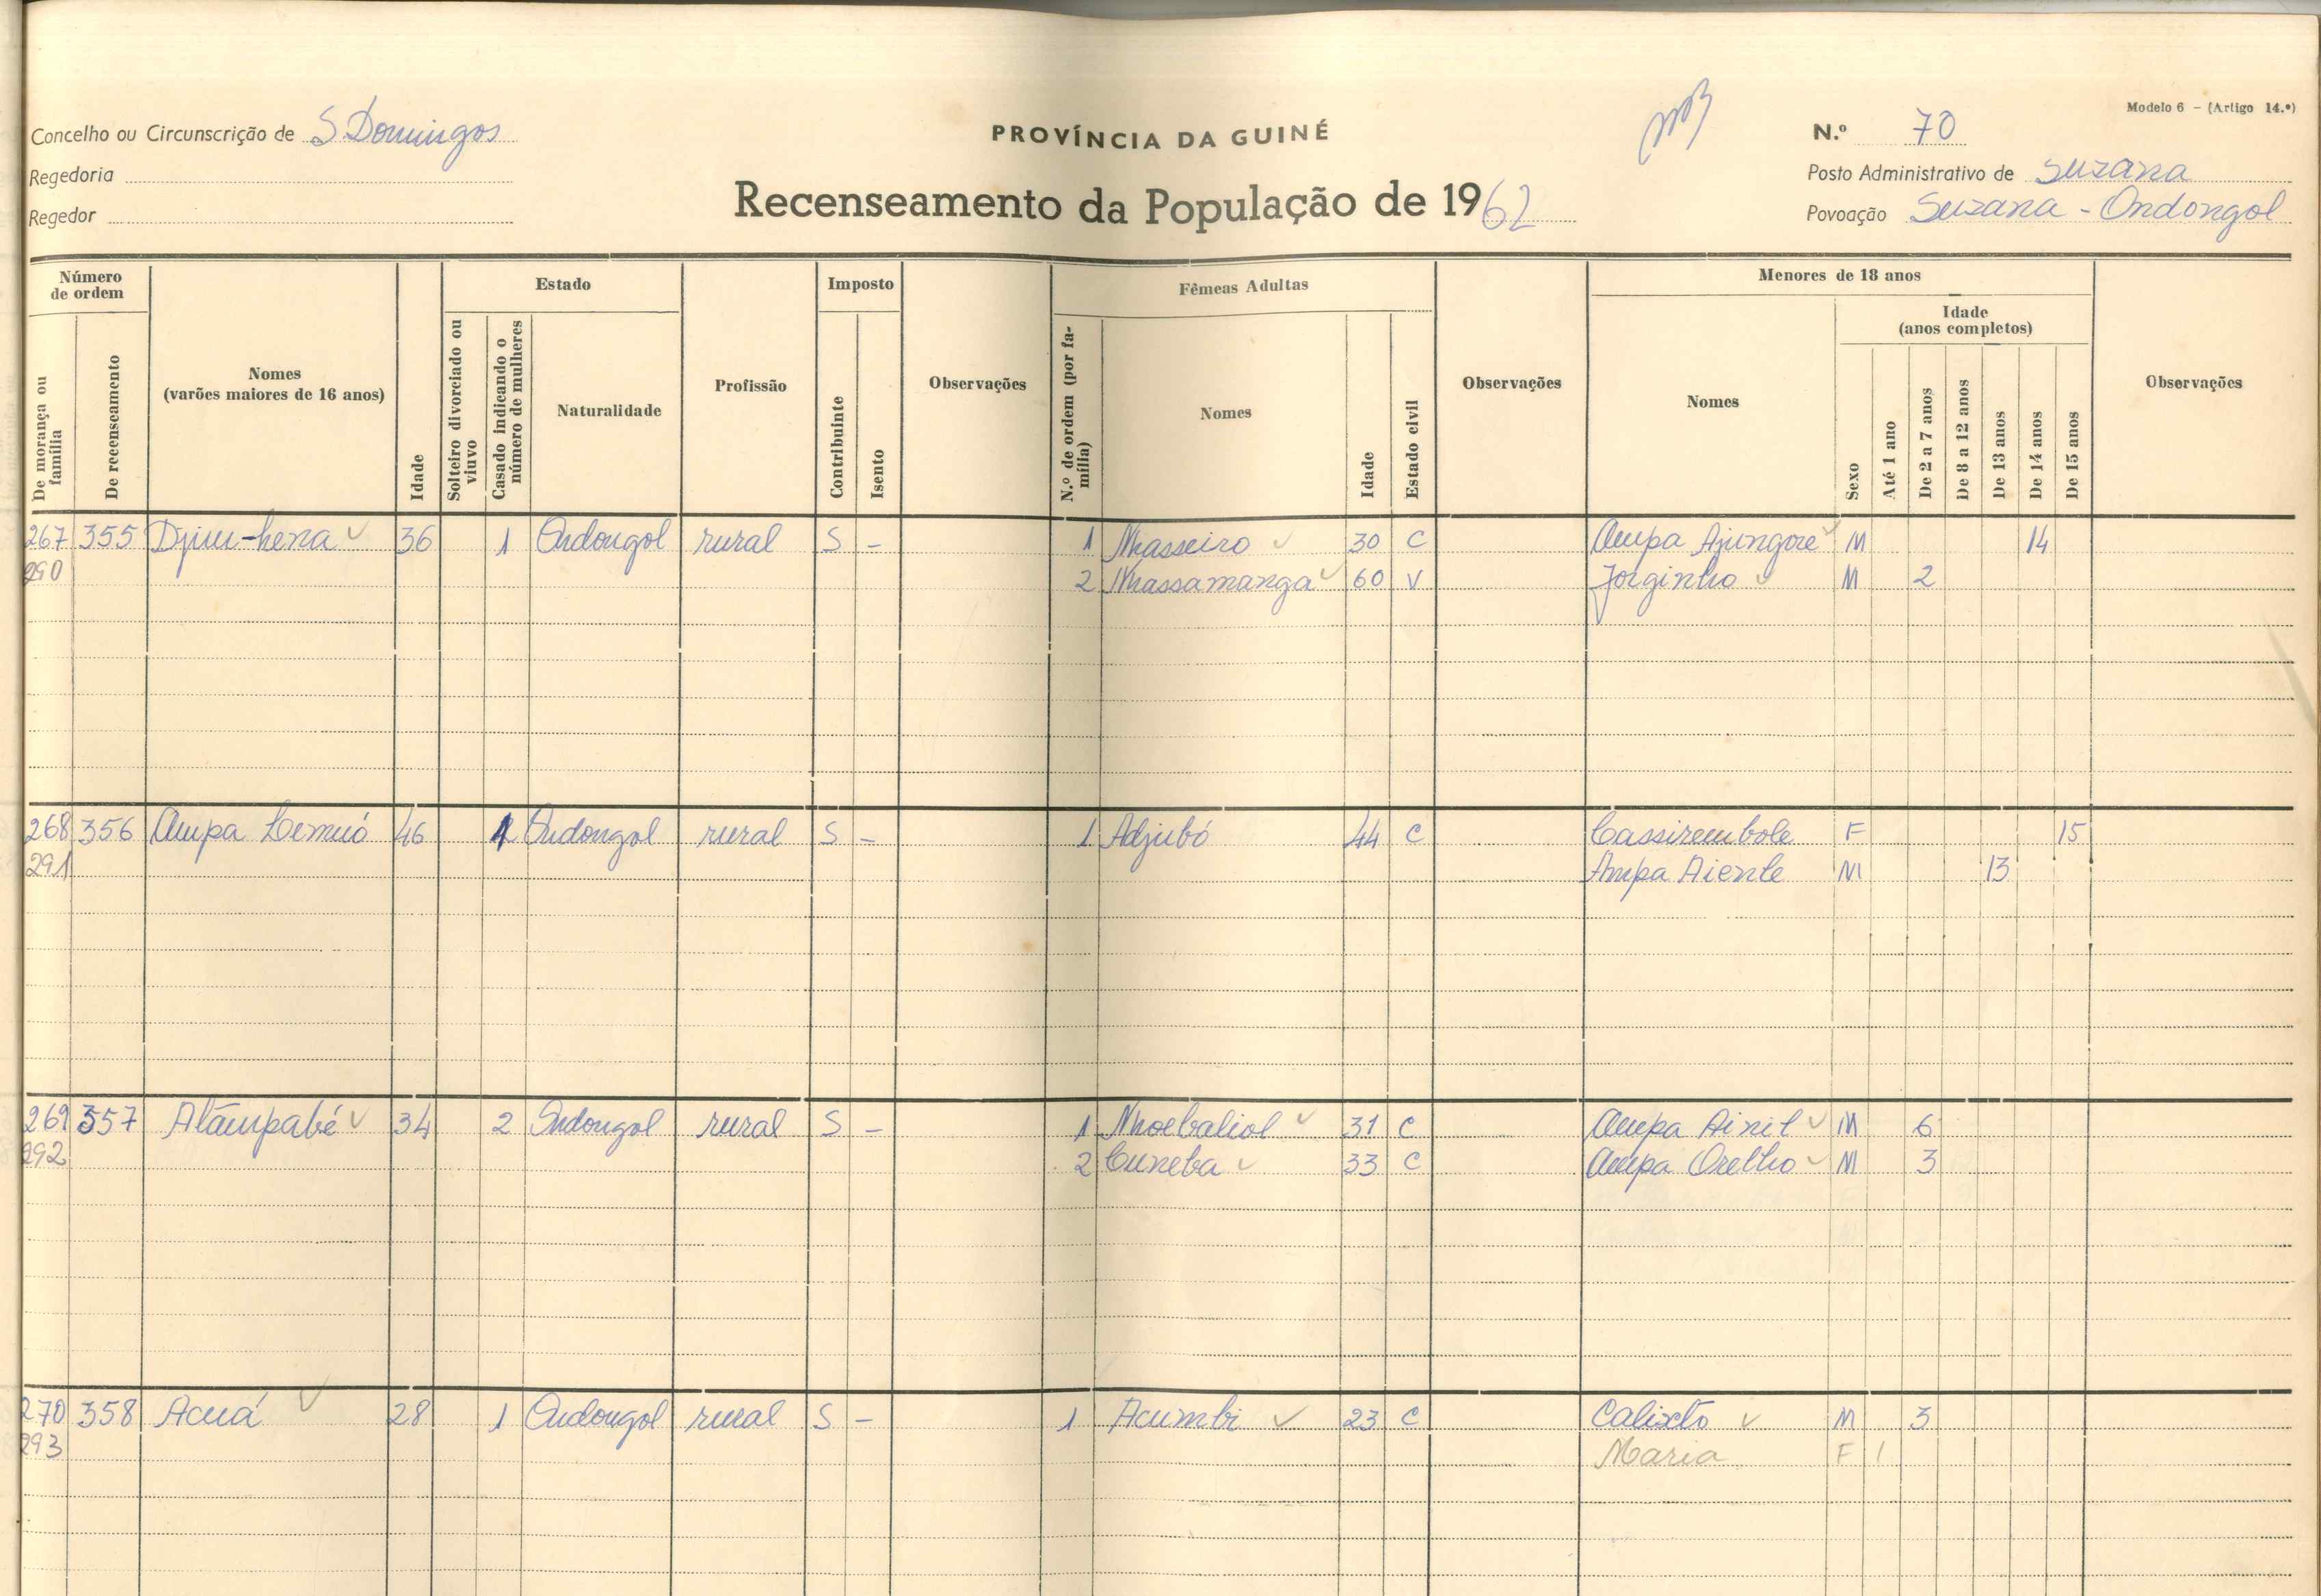 Modelo 6 - (Artigo 14.º)
Concelho ou Circunscrição de S. Domingos
PROVÍNCIA DA GUINÉ
N.º 70
Regedoria
Posto Administrativo de Suzana
Regedor
Recenseamento da População de 1962
Povoação Suzana - Ondongol
Número de ordem
Estado
Imposto
Fêmeas Adultas
Menores de 18 anos
Idade (anos completos)
De morança ou família
De recenseamento
Nomes (varões maiores de 16 anos)
Idade
Solteiro divorciado ou viuvo
Casado indicando o número de mulheres
Naturalidade
Profissão
Contribuinte
Isento
Observações
N.º de ordem (por família)
Nomes
Idade
Estado civil
Observações
Nomes
Sexo
Até 1 ano
De 2 a 7 anos
De 8 a 12 anos
De 13 anos
De 14 anos
De 15 anos
Observações
267 355 36 1 Ondongol rural S - 1 Nhasseiro 30 C Ampa Ajungore M 14
290 2 Nhassamanga 60 V Jorginho M 2
268 356 Ampa 46 1 Ondongol rural S - 1 Adjubó 44 C Cassirembole F 15
291 Ampa Aiente M 13
269 357 Alãmpabé 34 2 Ondongol rural S - 1 Nhoebaliol 31 C Ampa Ainil M 6
292 2 Cuneba 33 C Ampa Orelho M 3
270 358 Acuá 28 1 Ondongol rural S - 1 Acumbi 23 C Calixto M 3
293 Maria F 1